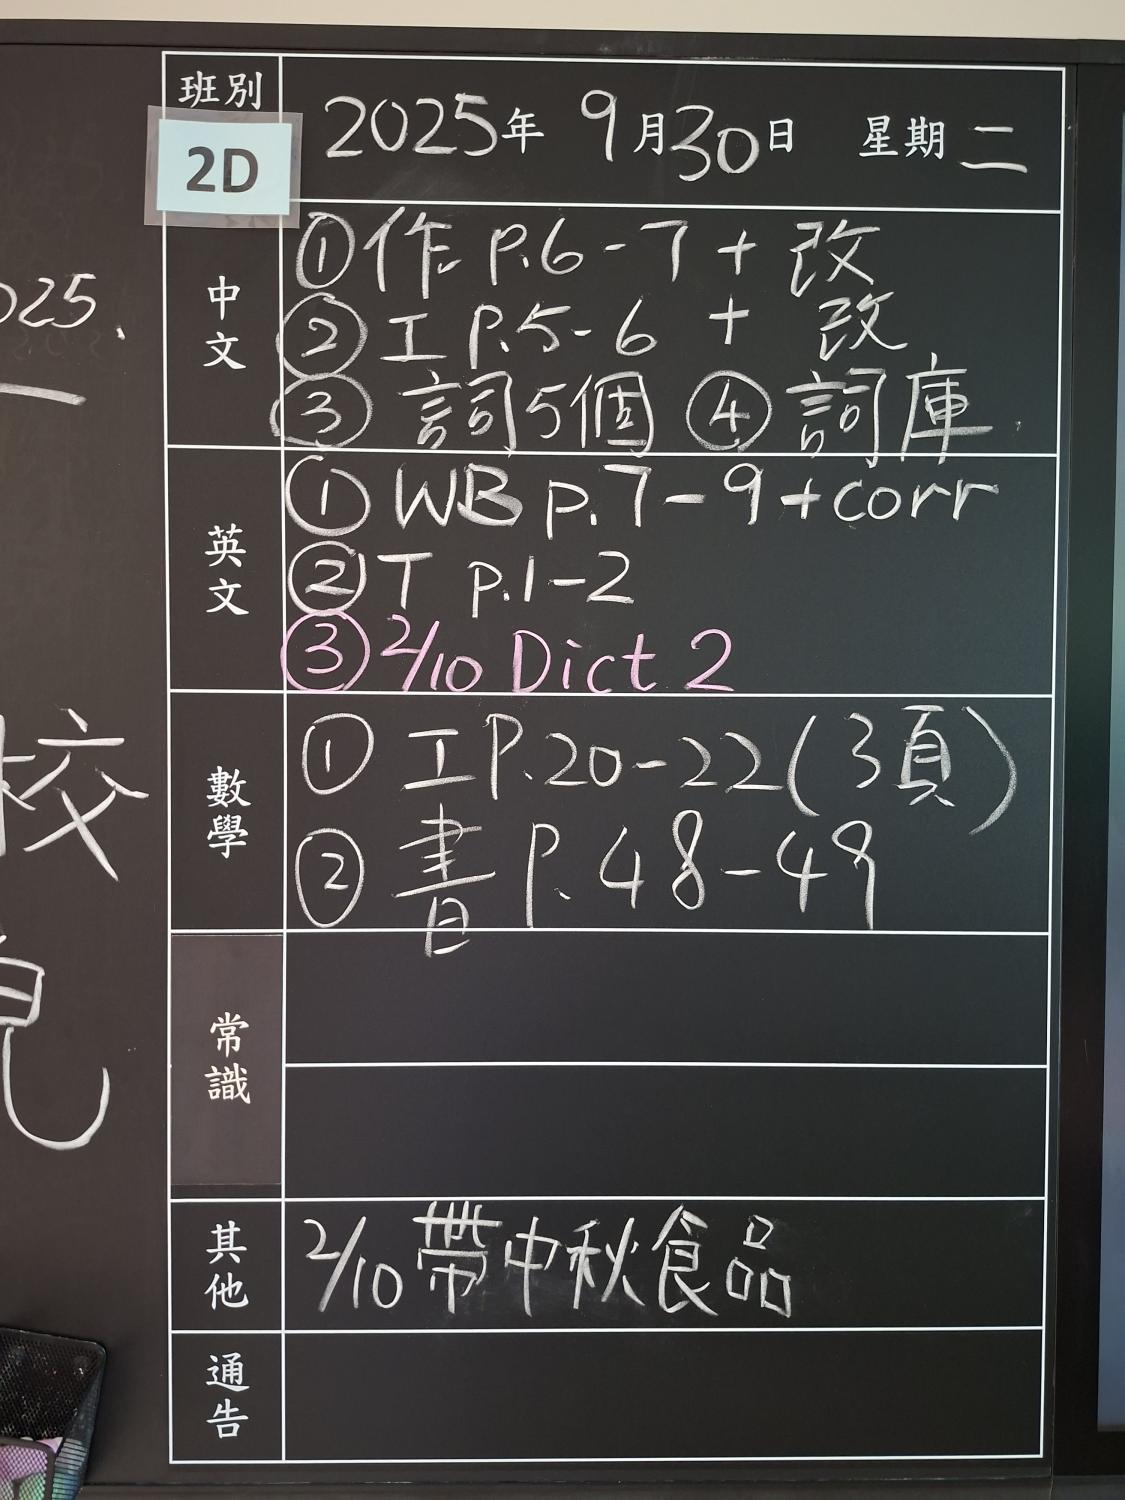 班別
2D
2025年 9月30日 星期二
中文
①作 P.6-7 + 改
②工 P.5-6 + 改
③ 詞5個 ④ 詞庫
英文
① WB p.7-9+corr
② T p.1-2
③ 2/10 Dict 2
數學
① 工P.20-22(3頁)
② 書 P.48-49
常識
其他
2/10 帶中秋食品
通告
025.
校